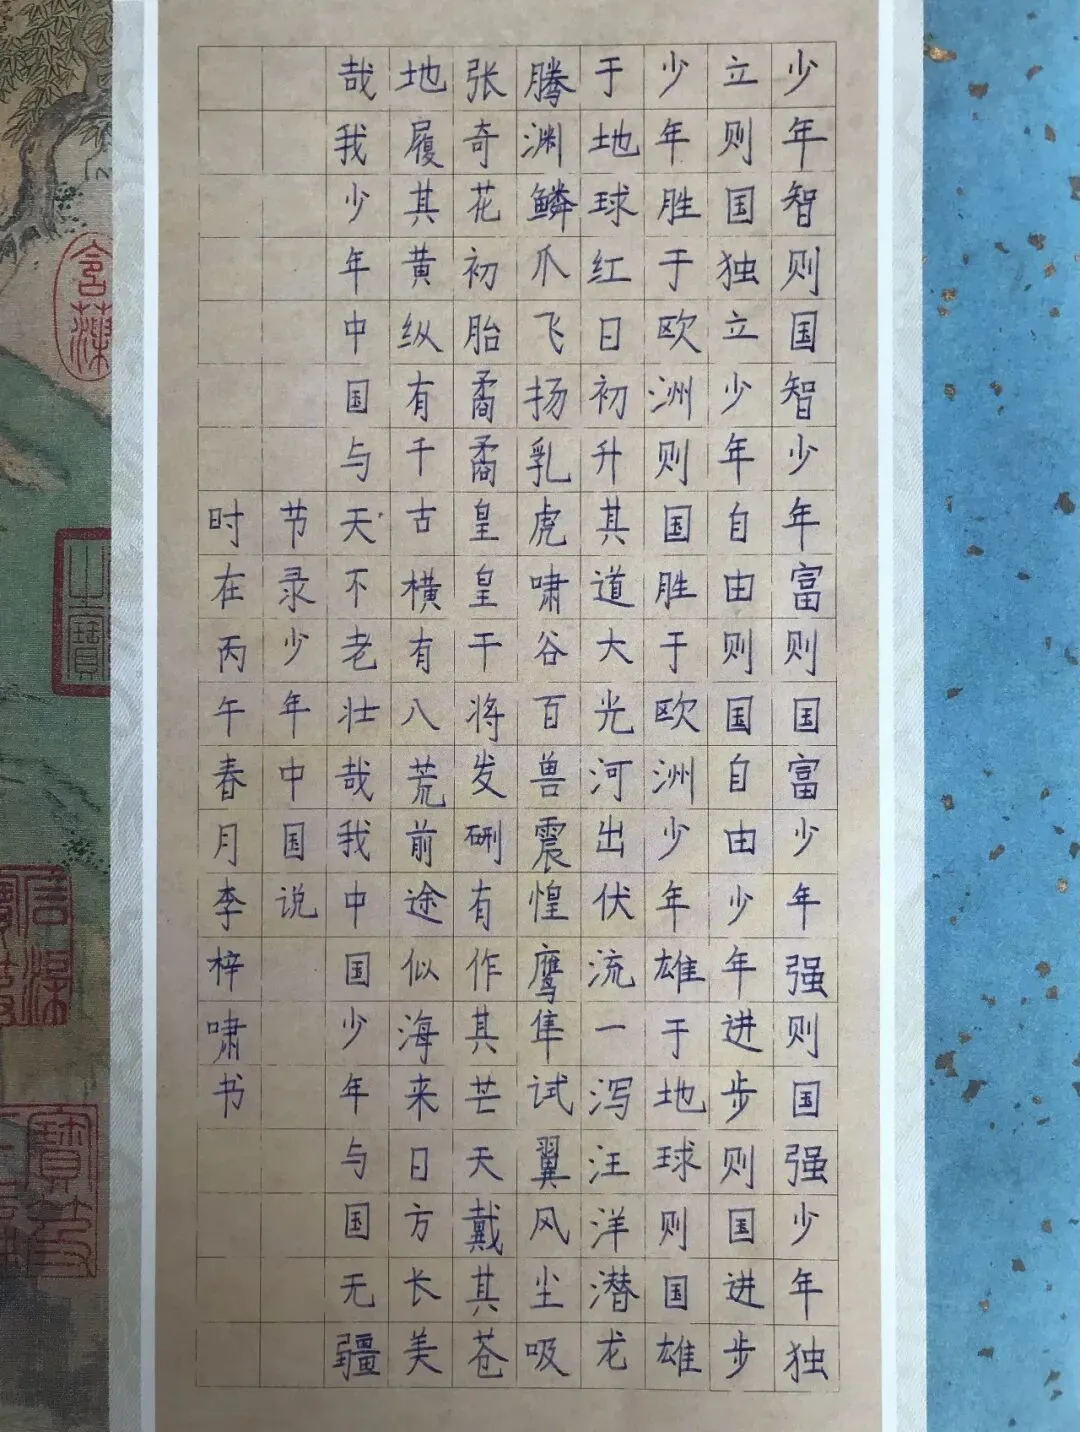 少年智则国智少年富则国富少年强则国强少年独
立则国独立少年自由则国自由少年进步则国进步
少年胜于欧洲则国胜于欧洲少年雄于地球则国雄
于地球红日初升其道大光河出伏流一泻汪洋潜龙
腾渊鳞爪飞扬乳虎啸谷百兽震惶鹰隼试翼风尘吸
张奇花初胎矞矞皇皇干将发硎有作其芒天戴其苍
地履其黄纵有千古横有八荒前途似海来日方长美
哉我少年中国与天不老壮哉我中国少年与国无疆
节录少年中国说
时在丙午春月李梓啸书